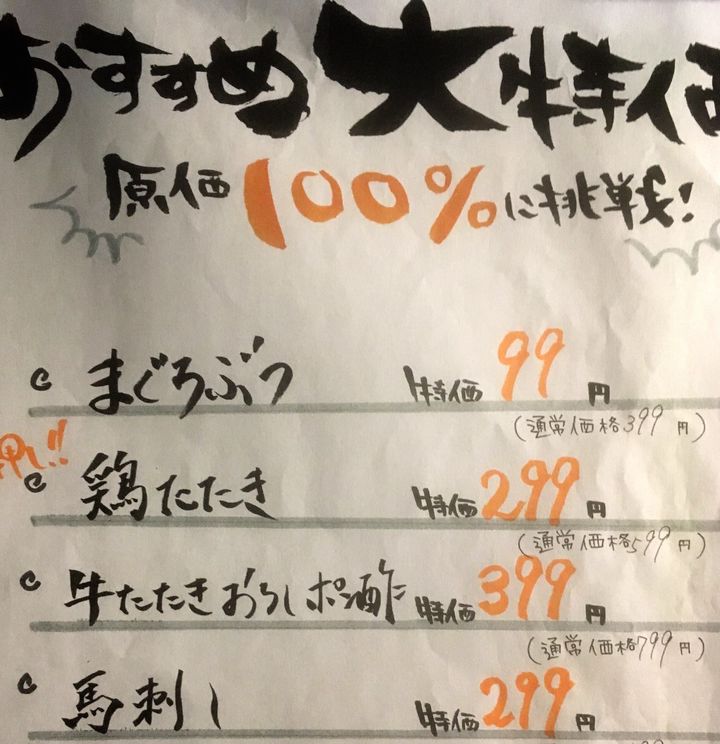 おすすめ大特価
原価100%に挑戦!
まぐろぶつ 特価99円
(通常価格399円)
押し!!
鶏たたき 特価299円
(通常価格599円)
牛たたきおろしポン酢 特価399円
(通常価格799円)
馬刺し 特価299円